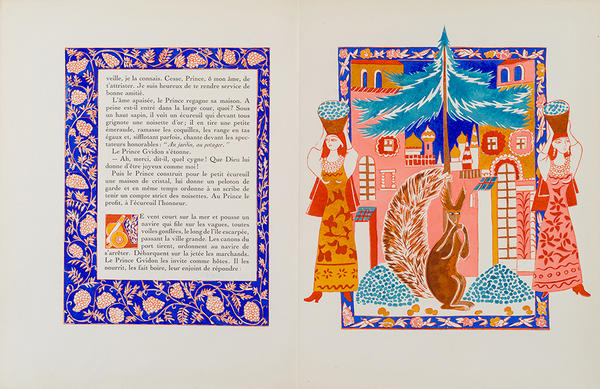 veille, je la connais. Cesse, Prince, ô mon âme, de
t'attrister. Je suis heureux de te rendre service de
bonne amitié.
L'âme apaisée, le Prince regagne sa maison. A
peine est-il entré dans la large cour, quoi? Sous
un haut sapin, il voit un écureuil qui devant tous
grignote une noisette d'or; il en tire une petite
émeraude, ramasse les coquilles, les range en tas
égaux et, sifflotant parfois, chante devant les spec-
tateurs honorables : "Au jardin, au potager."
Le Prince Gvidon s'étonne.
— Ah, merci, dit-il, quel cygne! Que Dieu lui
donne d'être joyeux comme moi!
Puis le Prince construit pour le petit écureuil
une maison de cristal, lui donne un peloton de
garde et en même temps ordonne à un scribe de
tenir un compte strict des noisettes. Au Prince le
profit, à l'écureuil l'honneur.
LE vent court sur la mer et pousse un
navire qui file sur les vagues, toutes
voiles gonflées, le long de l'île escarpée,
passant la ville grande. Les canons du
port tirent, ordonnent au navire de
s'arrêter. Débarquent sur la jetée les marchands.
Le Prince Gvidon les invite comme hôtes. Il les
nourrit, les fait boire, leur enjoint de répondre :